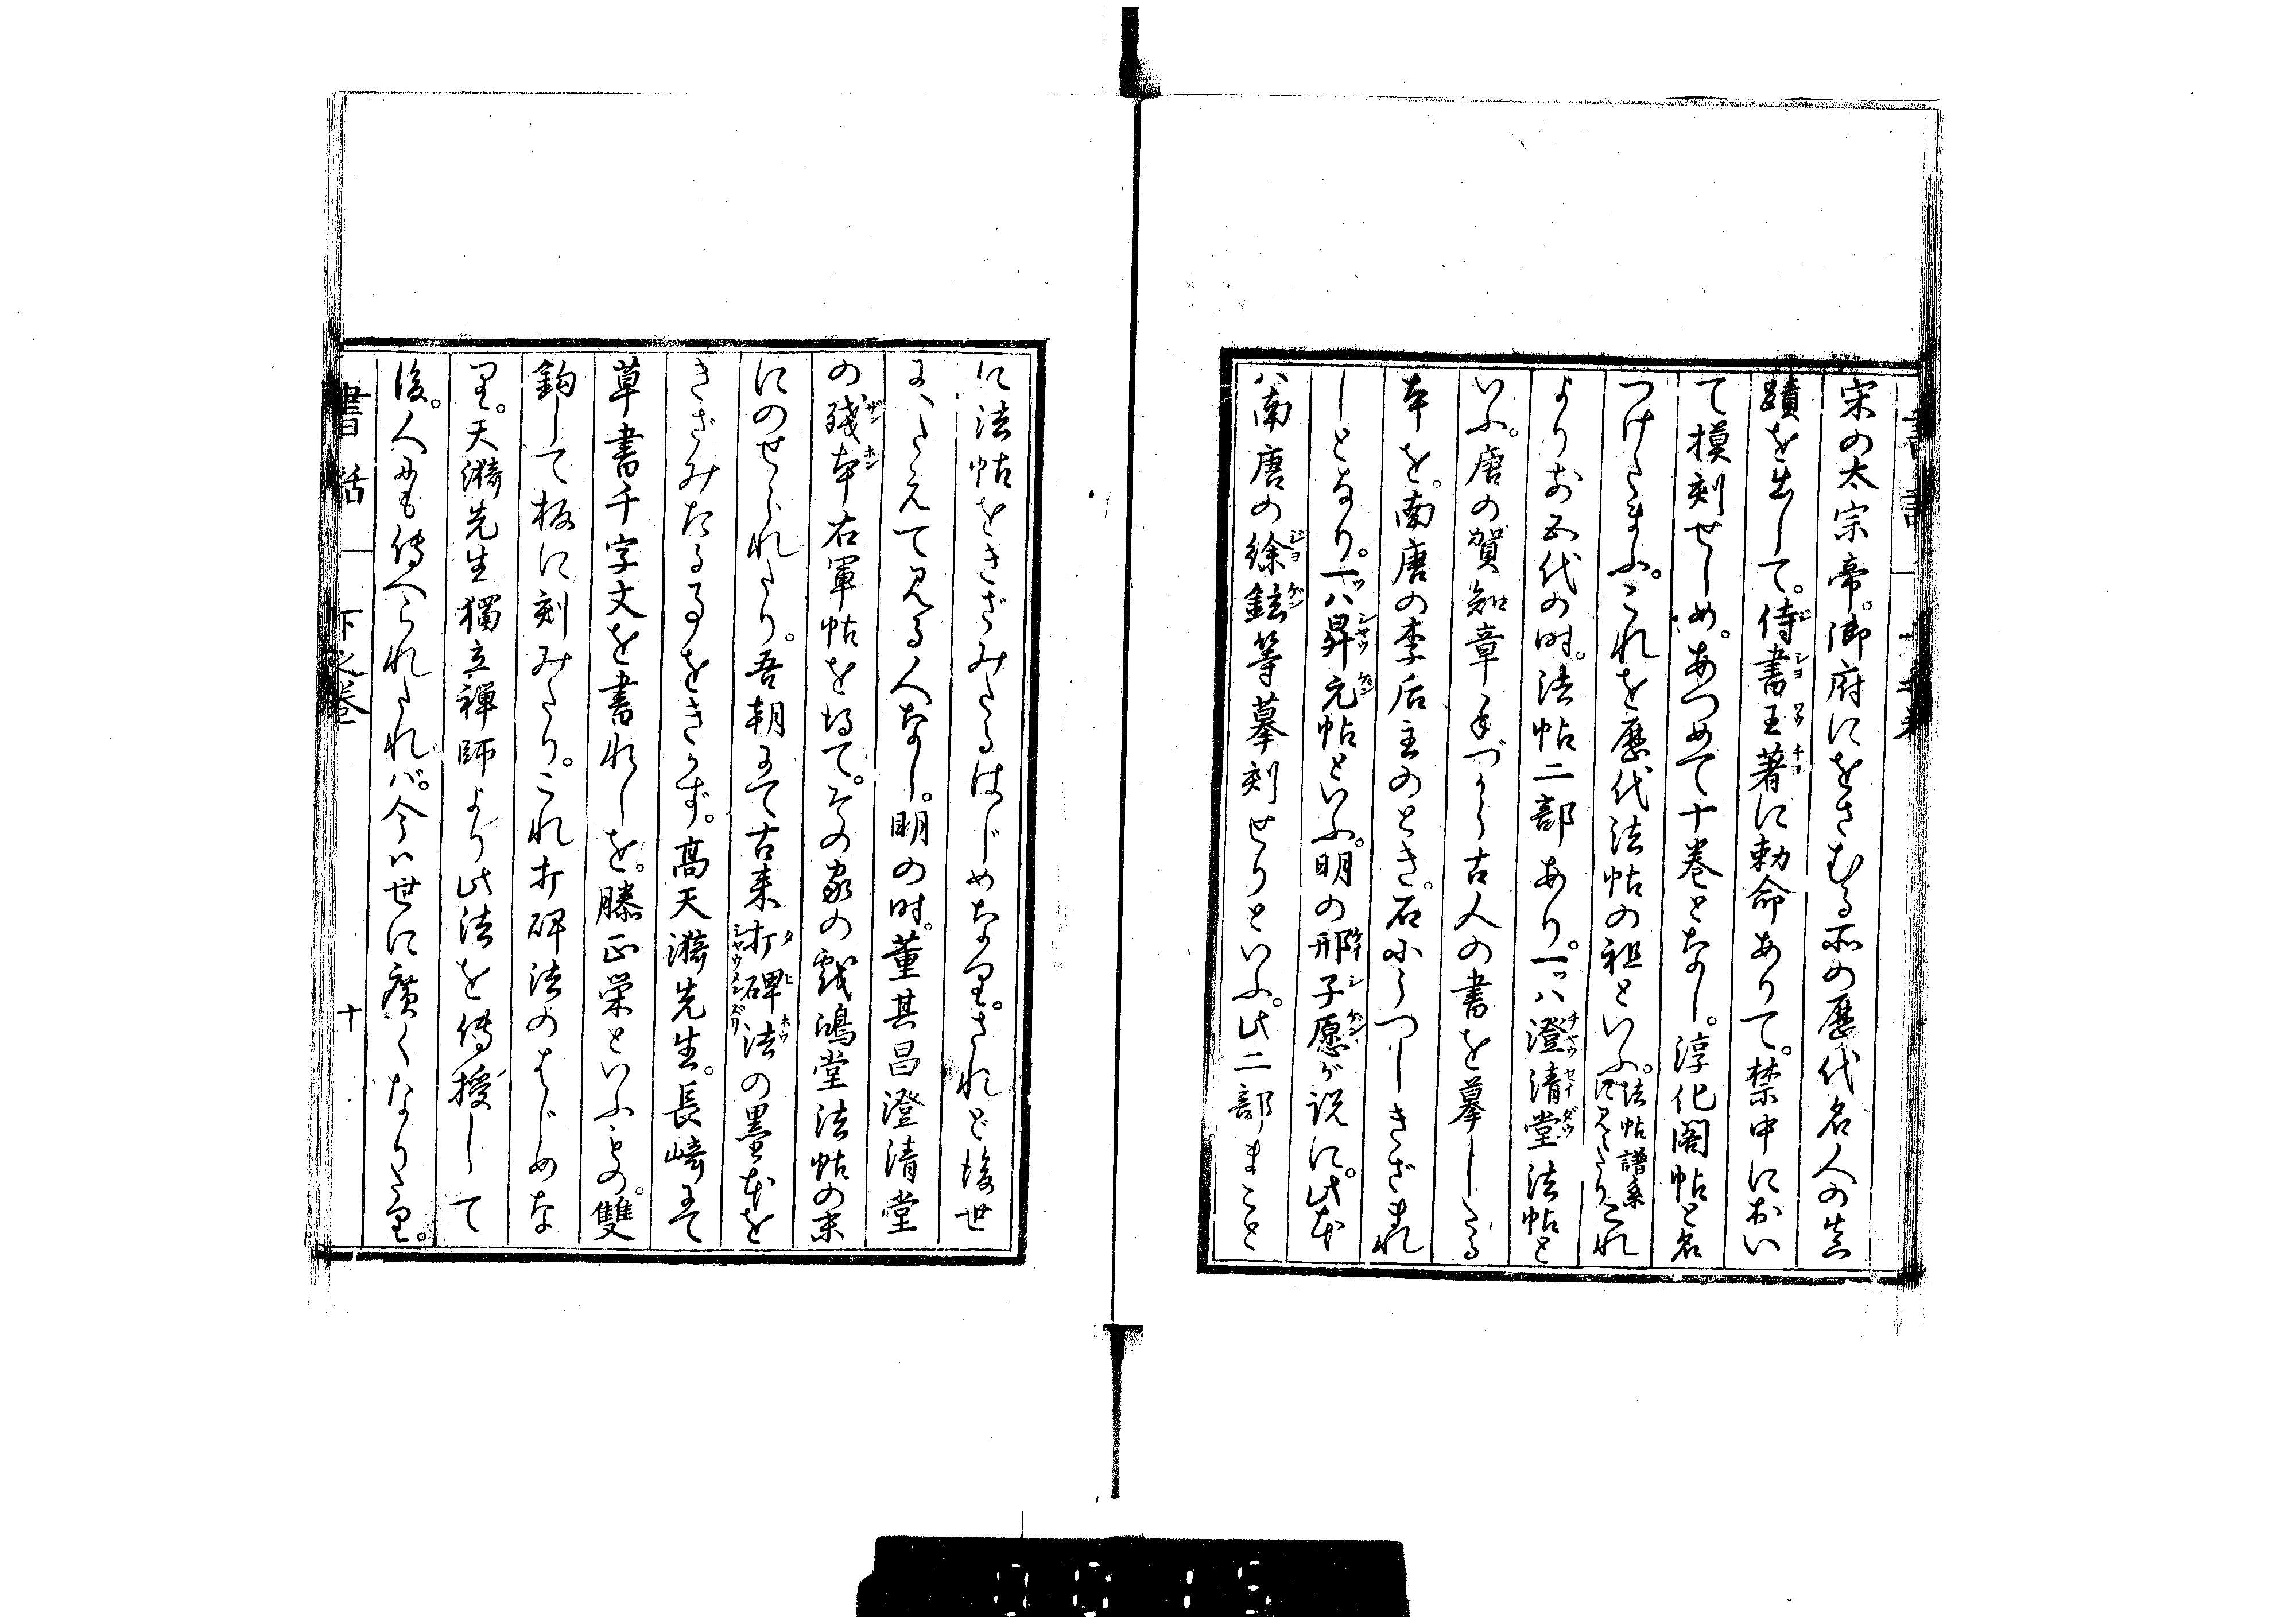 宋の太宗帝。御府にをさむる所の歴代名人の真
蹟を出して。侍書王著に勅命ありて。禁中におい
て摸刻せしめ。あつめて十巻となし。淳化閣帖と名
つけたまふ。これを歴代法帖の祖といふ。法帖譜系に見えたりこれ
より前五代の時。法帖二部あり。一ツハ澄清堂法帖と
いふ。唐の賀知章手づから古人の書を摹したる
本を。南唐の李后主のとき。石にうつしきざまれ
しとなり。一ツハ昇元帖といふ。明の邢子愿が説に。此本
ハ南唐の徐鉉等摹刻せりといふ。此二部まこと
に法帖をきざみたるはじめなり。されど後世
にハたえて見る人なし。明の時。董其昌澄清堂
の残本右軍帖を得て。その家の戯鴻堂法帖の末
にのせられたり。吾朝にて古来打碑法の墨本を
きざみたる事をきかず。高天漪先生。長崎にて
草書千字文を書れしを。滕正栄といふもの。雙
鈎して板に刻みたり。これ打碑法のはじめな
り。天漪先生獨立禅師より此法を傳授して
後。人にも傳へられたれバ。今ハ世に廣くなりたり。
書話 下之巻 十